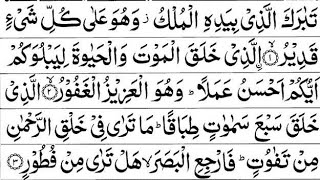 تَبٰرَكَ الَّذِیْ بِیَدِهِ الْمُلْكُ ز وَهُوَ عَلٰی كُلِّ شَیْءٍ
قَدِیْرُۨ ۝١ الَّذِیْ خَلَقَ الْمَوْتَ وَالْحَیٰوةَ لِیَبْلُوَكُمْ
اَیُّكُمْ اَحْسَنُ عَمَلًا ؕ وَهُوَ الْعَزِیْزُ الْغَفُوْرُ ۝٢ الَّذِیْ
خَلَقَ سَبْعَ سَمٰوٰتٍ طِبَاقًا ؕ مَا تَرٰی فِیْ خَلْقِ الرَّحْمٰنِ
مِنْ تَفٰوُتٍ ؕ فَارْجِعِ الْبَصَرَ ۙ هَلْ تَرٰی مِنْ فُطُوْرٍ ۝٣